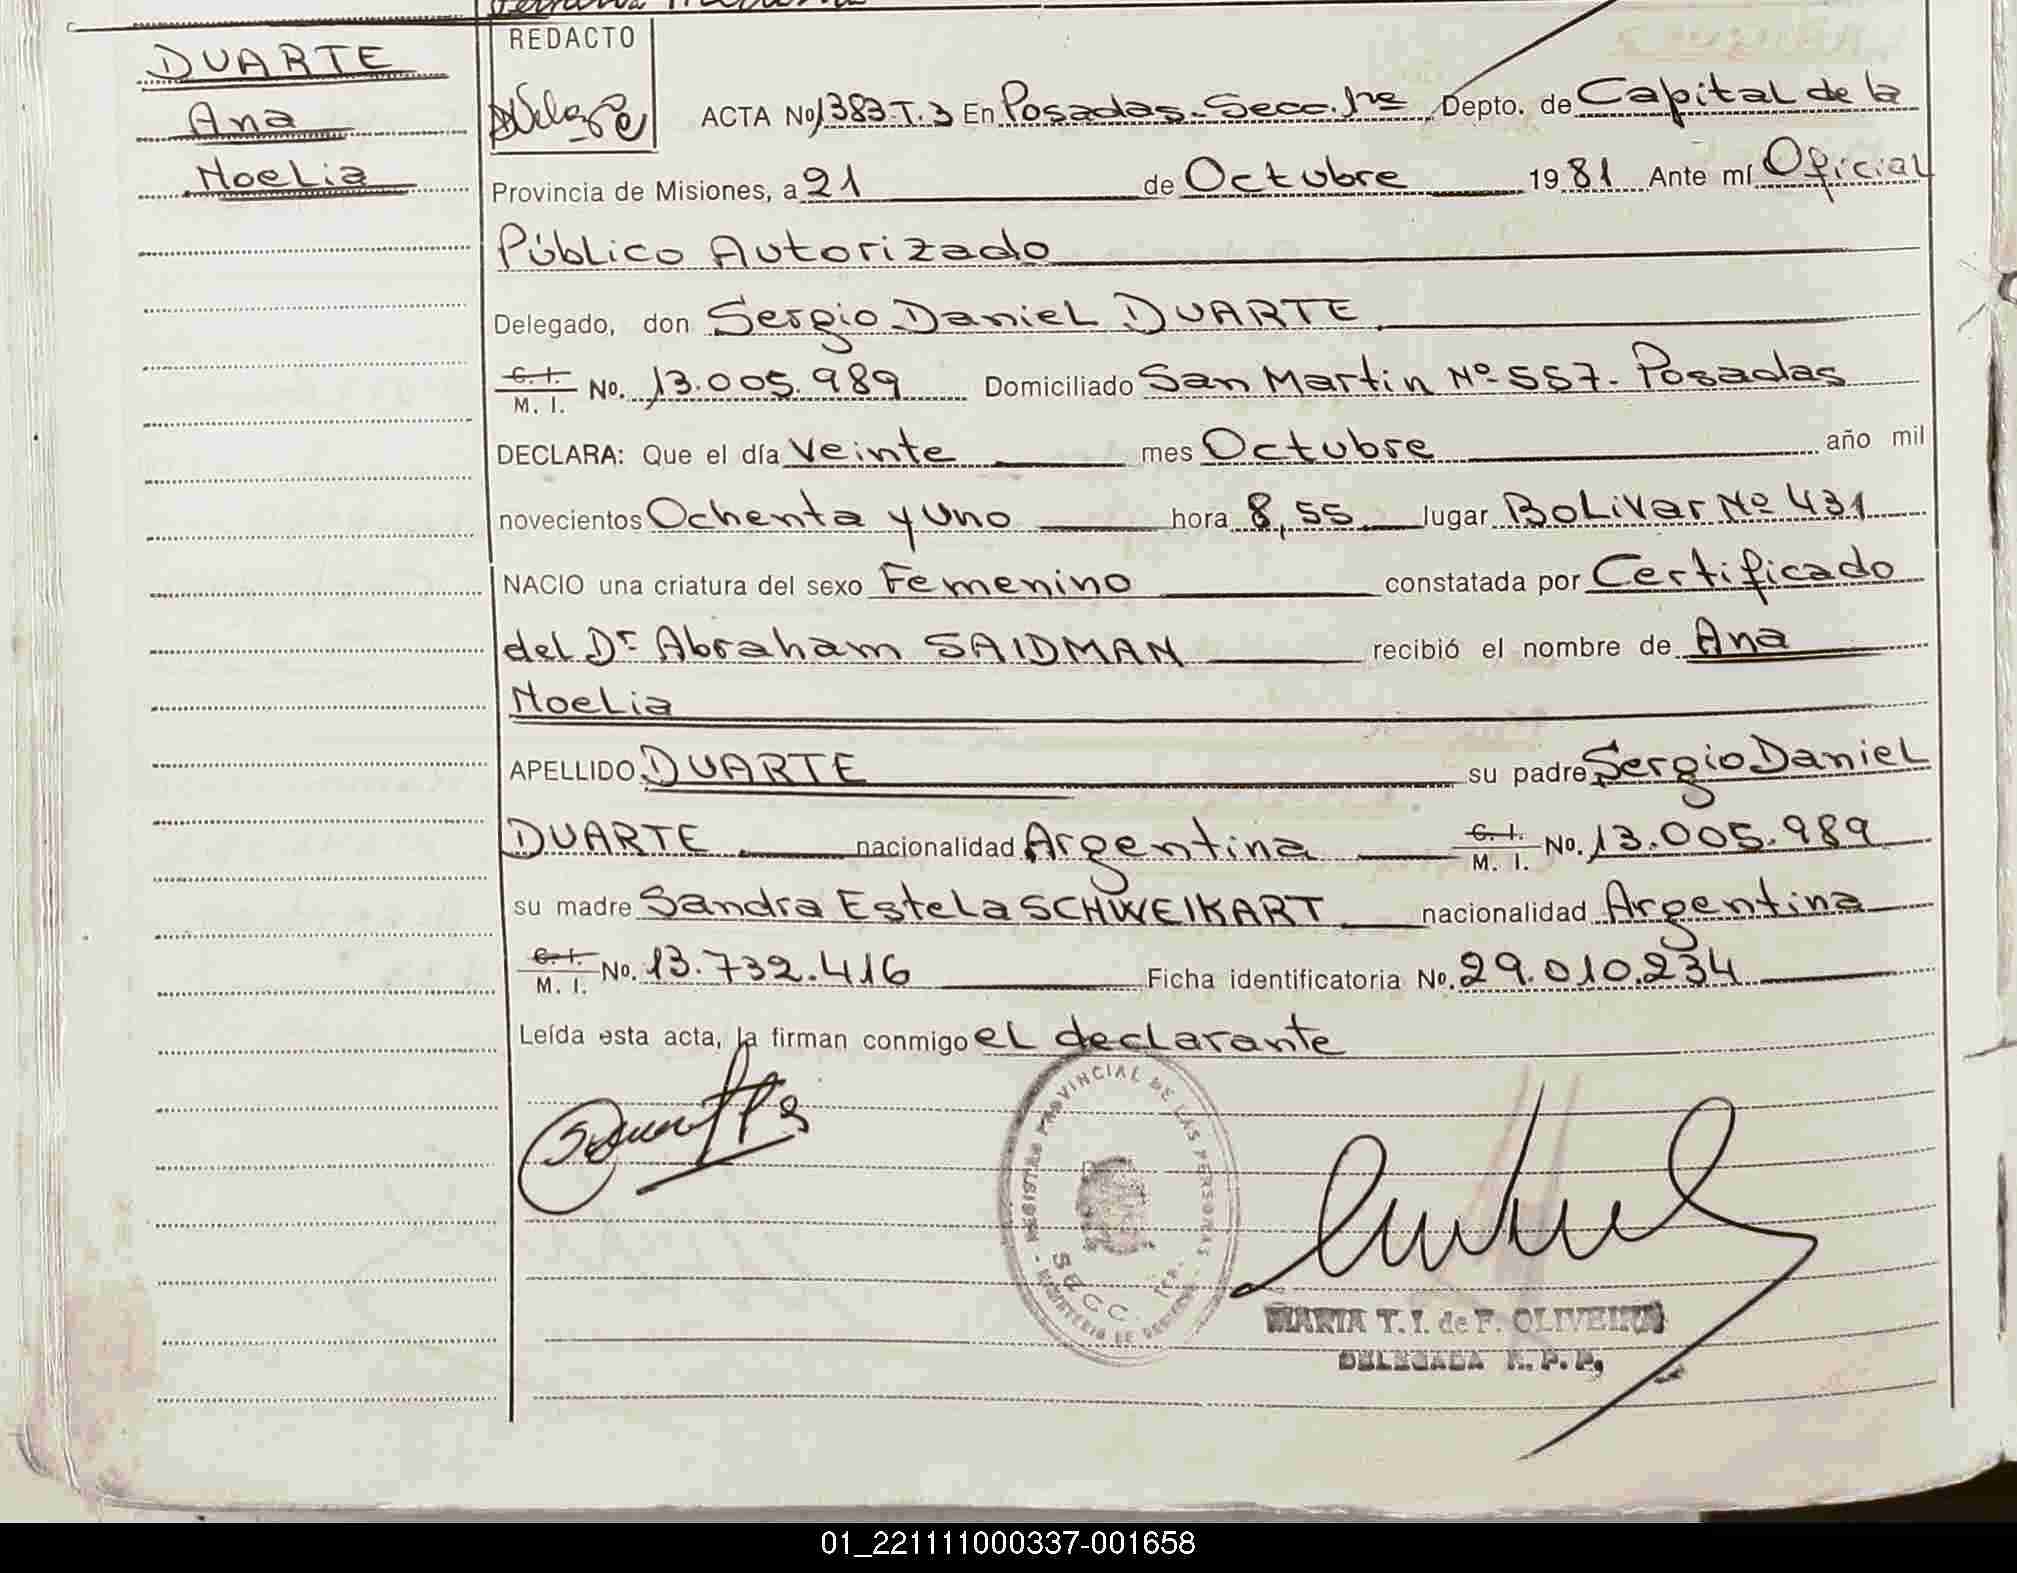 DUARTE
Ana
Noelia
REDACTO
ACTA No 1383-T.3 En Posadas-Secc.1ra Depto. de Capital de la
Provincia de Misiones, a 21 de Octubre 1981 Ante mí Oficial
Público Autorizado
Delegado, don Sergio Daniel DUARTE
C. I. M. I. No. 13.005.989 Domiciliado San Martin Nº 557- Posadas
DECLARA: Que el día veinte mes Octubre año mil
novecientos Ochenta y uno hora 8,55 lugar Bolivar Nº 431
NACIO una criatura del sexo Femenino constatada por Certificado
del Dr Abraham SAIDMAN recibió el nombre de Ana
Noelia
APELLIDO DUARTE su padre Sergio Daniel
DUARTE nacionalidad Argentina C. I. M. I. No. 13.005.989
su madre Sandra Estela SCHWEIKART nacionalidad Argentina
C. I. M. I. No. 13.732.416 Ficha identificatoria No. 29.010.234
Leída esta acta, la firman conmigo el declarante
REGISTRO PROVINCIAL DE LAS PERSONAS
SECC. 1ra.
MINISTERIO DE GOBIERNO
MARIA T. I. de F. OLIVEIRA
DELEGADA R. P. P.
01_221111000337-001658